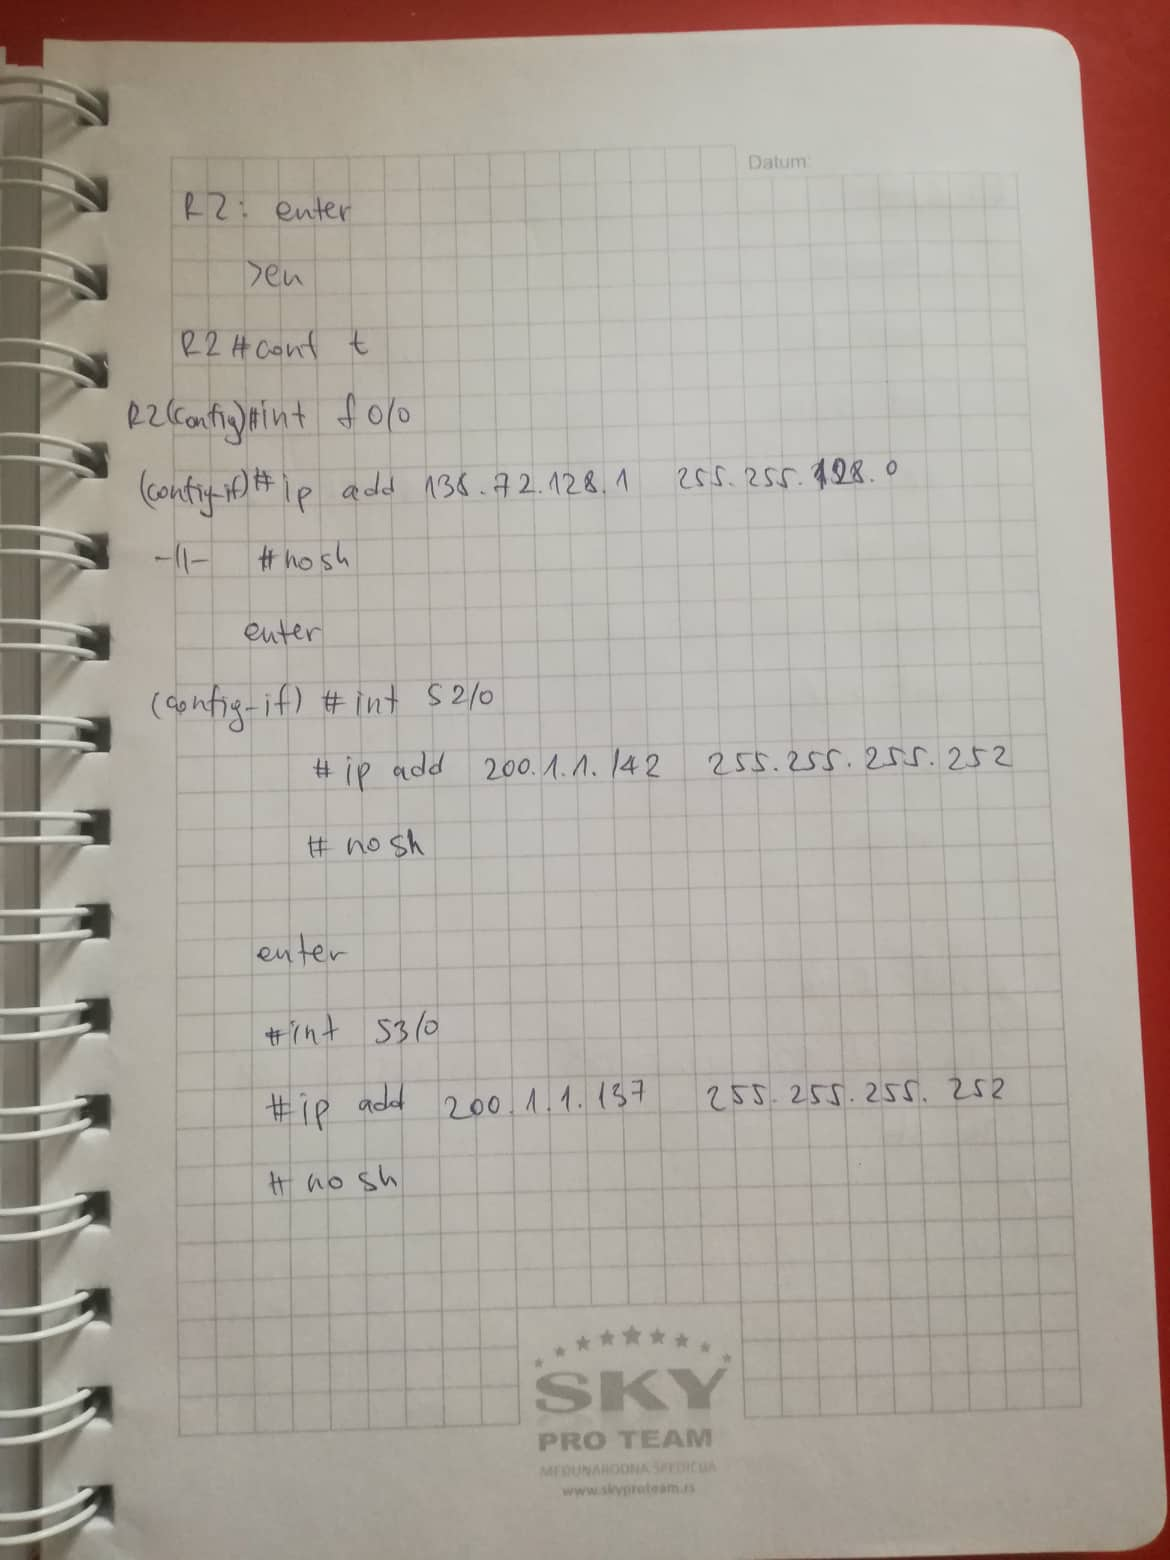 Datum:
R2: enter
>en
R2#conf t
R2(config)#int f0/0
(config-if)# ip add 136.72.128.1 255.255.128.0
-11- #no sh
enter
(config-if) #int S2/0
#ip add 200.1.1.142 255.255.255.252
# no sh
enter
#int S3/0
#ip add 200.1.1.137 255.255.255.252
# no sh
SKY
PRO TEAM
MEĐUNARODNA ŠPEDICIJA
www.skyproteam.rs